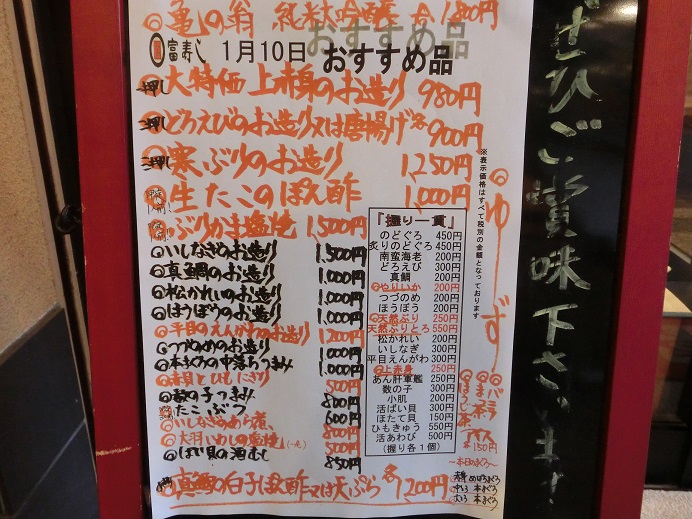 亀の翁 純米大吟醸 合1,800円
富寿し 1月10日 おすすめ品
一押し 大特価 上赤身のお造り 980円
二押し どろえびのお造り又は唐揚げ 各900円
三押し 寒ぶりのお造り 1,250円
生たこのぽん酢 1,000円
ぶりかま塩焼 1,500円
いしなぎのお造り 1,500円
真鯛のお造り 1,000円
松かれいのお造り 1,000円
ほうぼうのお造り 1,000円
平目のえんがわのお造り 1,200円
つづのめのお造り 1,000円
本まぐろの中落ちつまみ 1,000円
赤貝とひもにぎり 500円
数の子つまみ 800円
たこぶつ 600円
いしなぎのあら煮 800円
大羽いわしの塩焼(一匹) 500円
ばい貝の酒むし 850円
真鯛の白子ぽん酢又は天ぷら 各1,200円
「握り一貫」
のどぐろ 450円
炙りのどぐろ 450円
南蛮海老 200円
どろえび 300円
真鯛 200円
やりいか 200円
つづのめ 200円
ほうぼう 200円
天然ぶり 250円
天然ぶりとろ 550円
松かれい 200円
いしなぎ 300円
平目えんがわ 300円
上赤身 250円
あん肝軍艦 250円
数の子 300円
小肌 200円
活ばい貝 300円
ほたて貝 150円
ひもきゅう 550円
活あわび 500円
(握り各1個)
※表示価格はすべて税別の金額となっております
ゆず
バニラ
ごま
ほうじ茶
アイス
各150円
~本日のまぐろ~
赤身 めばちまぐろ
中とろ 本まぐろ
大とろ 本まぐろ
ぜひご賞味下さいませ!